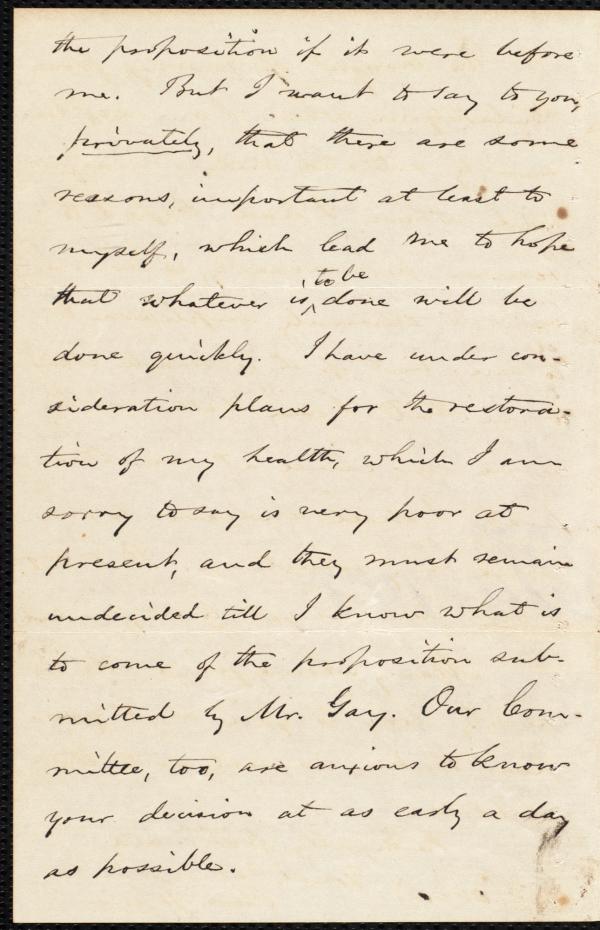 the proposition if it were before
me. But I want to say to you,
privately, that there are some
reasons, important at least to
myself, which lead me to hope
that whatever is to be done will be
done quickly. I have under con-
sideration plans for the restora-
tion of my health, which I am
sorry to say is very poor at
present, and they must remain
undecided till I know what is
to come of the proposition sub-
mitted by Mr. Gay. Our Com-
mittee, too, are anxious to know
your decision at as early a day
as possible.